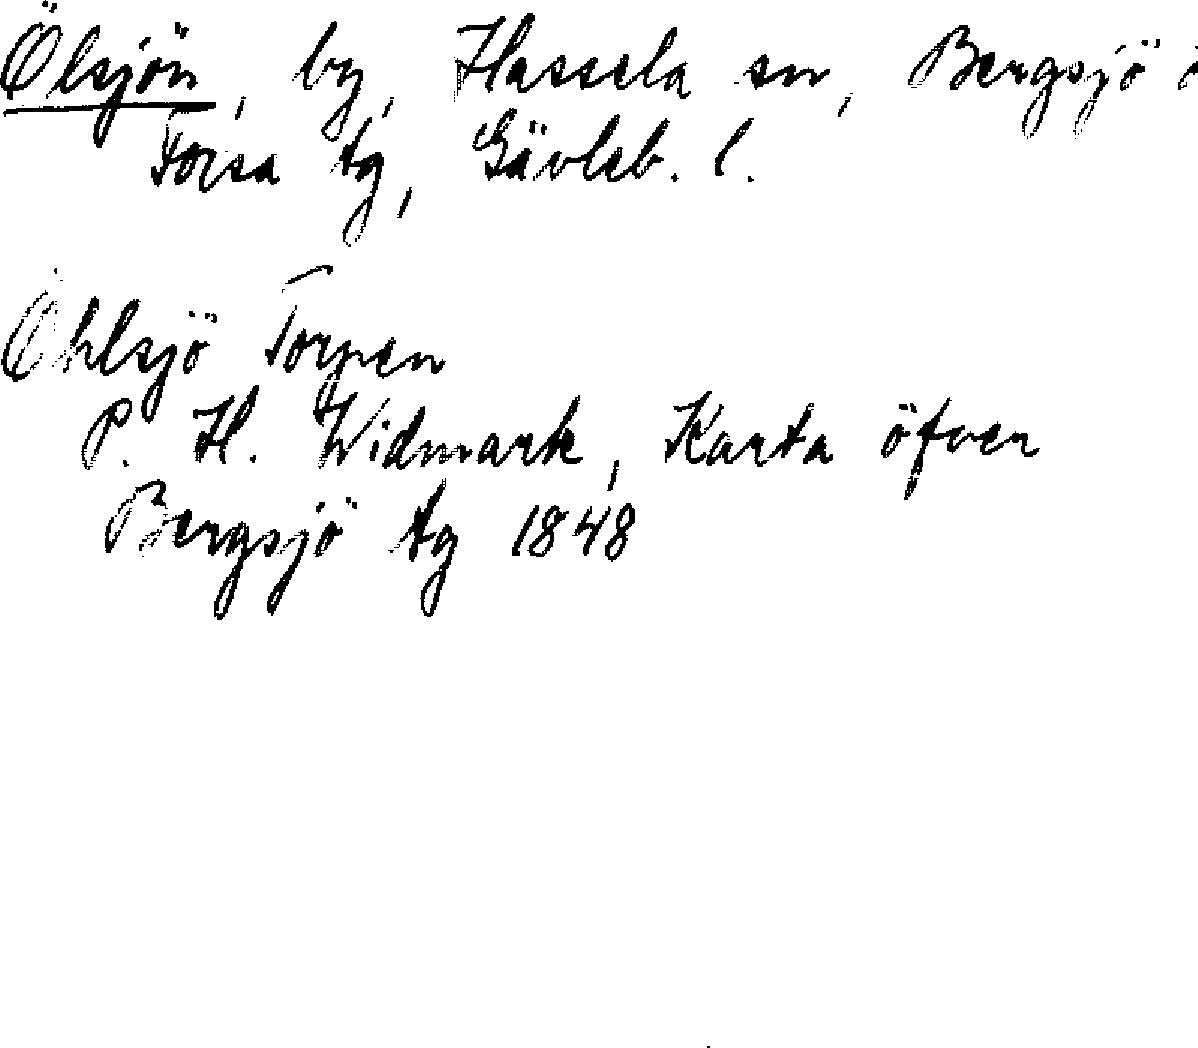 Ölsjön, by, Hassela sn, Bergsjö o
Forsa tg, Gävleb. l.
Öhlsjö Torpen
P. H. Widmark, Karta öfver
Bergsjö tg 1848